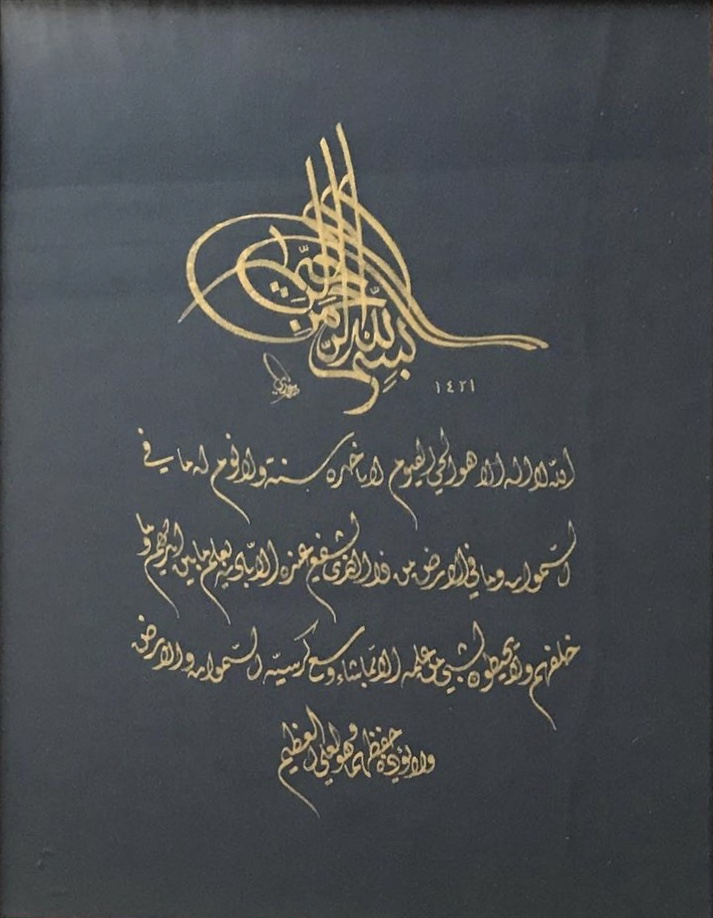 بسم الله الرحمن الرحيم
١٤٢١
الله لا اله الا هو الحي القيوم لا تاخذه سنة ولا نوم له ما في
السموات وما في الارض من ذا الذي يشفع عنده الا باذنه يعلم ما بين ايديهم وما
خلفهم ولا يحيطون بشيء من علمه الا بما شاء وسع كرسيه السموات والارض
ولا يؤده حفظهما وهو العلي العظيم